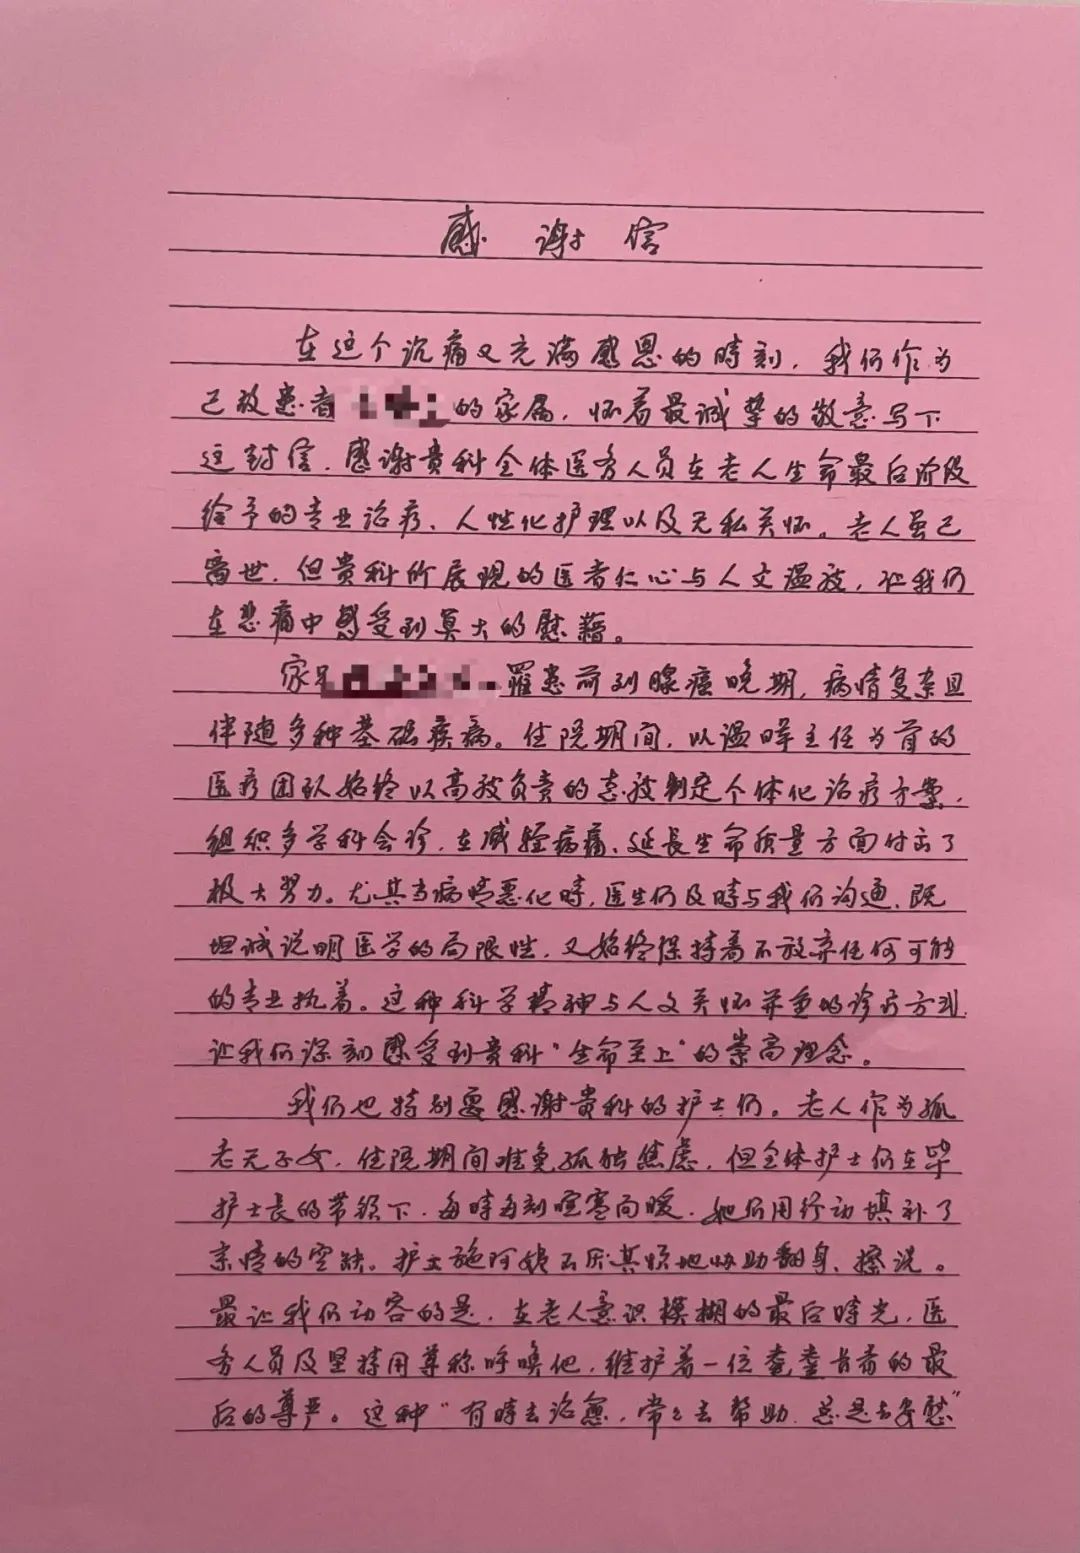 感谢信
在这个沉痛又充满感恩的時刻，我们作为
已故患者的家属，怀着最诚挚的敬意写下
这封信，感谢贵科全体医务人员在老人生命最后阶段
给予的专业治疗、人性化护理以及无私关怀。老人虽已
离世，但贵科所展现的医者仁心与人文温度，让我们
在悲痛中感受到莫大的慰藉。
家罹患前列腺癌晚期，病情复杂且
伴随多种基础疾病。住院期间，以温主任为首的
医疗团队始终以高度负责的态度制定个体化治疗方案，
组织多学科会诊，在减轻病痛、延長生命质量方面付出了
极大努力。尤其当病情恶化時，医生们及時与我们沟通，既
坦诚说明医学的局限性，又始终保持着不放弃任何可能
的专业执着。这种科学精神与人文关怀并重的诊疗方式，
让我们深刻感受到贵科“生命至上”的崇高理念。
我们也特别要感谢贵科的护士们。老人作为孤
老无子女，住院期间难免孤独焦虑，但全体护士们在毕
护士長的带领下，每時每刻嘘寒问暖，她们用行动填补了
亲情的空缺。护士施阿姨不厌其烦地协助翻身、擦洗。
最让我们动容的是，在老人意识模糊的最后時光，医
务人员及坚持用尊称呼唤他，维护着一位耄耋者的最
后的尊严。这种“有時去治愈，常常去帮助，总是去安慰”